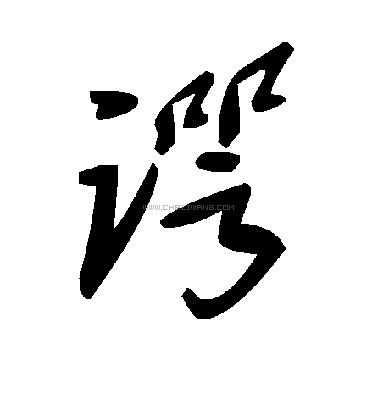 谔
WWW.CHAZIWANG.COM